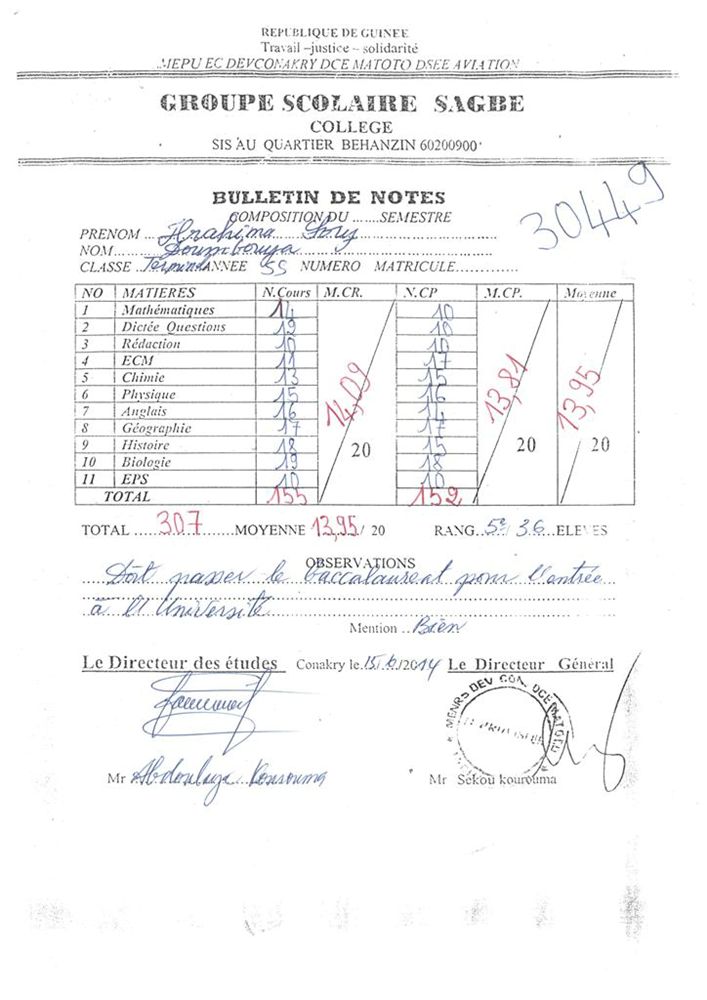 REPUBLIQUE DE GUINEE
Travail –justice – solidarité
MEPU EC DEVCONAKRY DCE MATOTO DSEE AVIATION
GROUPE SCOLAIRE SAGBE
COLLEGE
SIS AU QUARTIER BEHANZIN 60200900
30449
BULLETIN DE NOTES
COMPOSITION DU .......SEMESTRE
PRENOM ...Ibrahima Sory
NOM....Doumbouya
CLASSE ..Terminal ANNEE SS NUMERO MATRICULE..............
NO MATIERES N.Cours M.CR. N.CP M.CP. Moyenne
1 Mathématiques 14 10
2 Dictée Questions 12 10
3 Rédaction 10 10
4 ECM 11 17
5 Chimie 13 15
6 Physique 15 16
7 Anglais 16 14
8 Géographie 17 17
9 Histoire 18 15
10 Biologie 19 18
11 EPS 10 10
14,09 / 20 13,81 / 20 13,95 / 20
TOTAL 155 152
TOTAL ....307..........MOYENNE 13,95/ 20 RANG..5e/ 36..ELEVES
OBSERVATIONS
Doit passer le baccalaureat pour l'entrée
à l'Université
Mention ..Bien
Le Directeur des études Conakry le.15/6/2014 Le Directeur Général
MENRS DEV CON. DCE MATOTO
LE PROVISEUR
Mr Abdoulaye Kourouma Mr Sékou kourouma